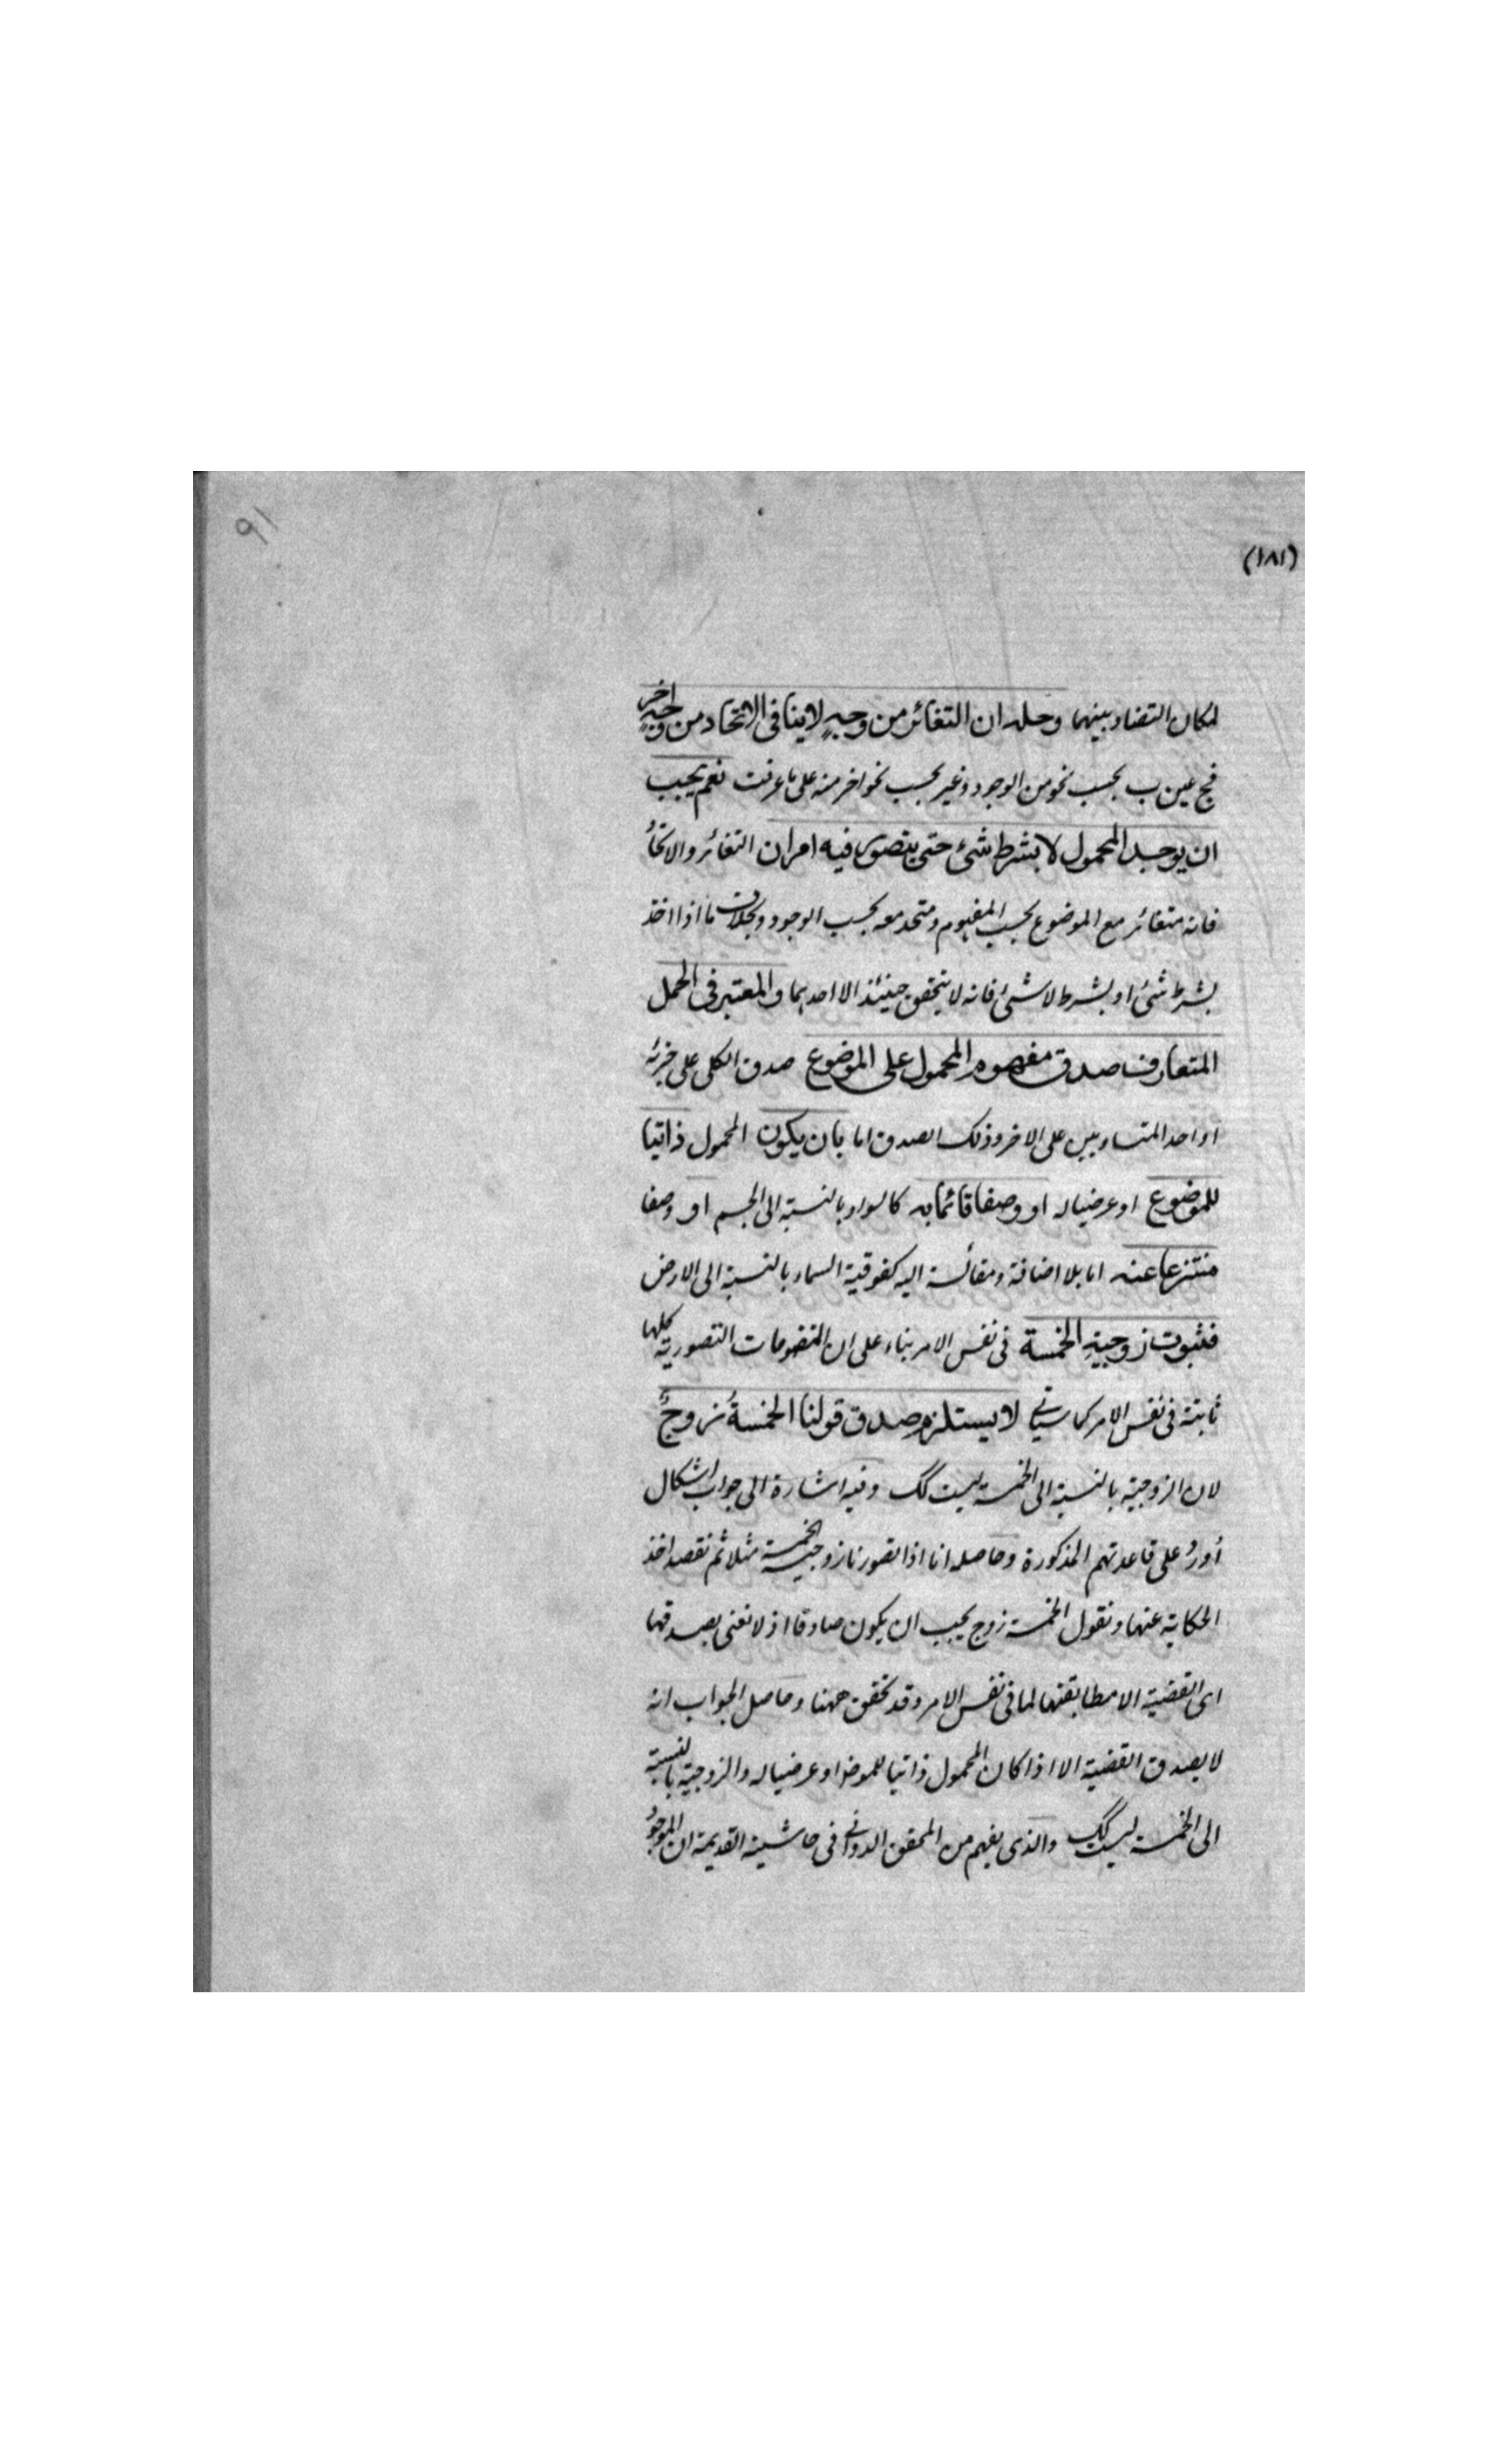 ٩١
(١٨١)
لمكان التضاد بينهما وحله ان التغائر من وجهٍ لا ينافى الاتحاد من وجهٍ اخر
فج عين ب بحسب نحو من الوجود وغير بحسب نحو اخر منه على ما عرفت نعم يجب
ان يوجد المحمول لا بشرط شئ حتى يتصور فيه امران التغائر والاتحاد
فانه متغائر مع الموضوع بحسب المفهوم ومتحد معه بحسب الوجود وبخلاف ما اذا اخذ
بشرط شئ او بشرط لا شئ فانه لا يتحقق حينئذ الا احدهما والمعتبر فى الحمل
المتعارف صدق مفهوم المحمول على الموضوع صدق الكلى على جزئه
او احد المتساويين على الاخر وذلك الصدق اما بان يكون المحمول ذاتيا
للموضوع او عرضيا له او وصفا قائما به كالسواد بالنسبة الى الجسم او وصفا
منتزعا عنه اما بلا اضافة ومقائسة اليه كفوقية السماء بالنسبة الى الارض
فثبوت زوجيةِ الخمسة فى نفس الامر بناء على ان المفهومات التصورية كلها
ثابتة فى نفس الامر كما سياتى لا يستلزم صدق قولنا الخمسةُ زوجٌ
لان الزوجية بالنسبة الى الخمسة ليست كك وفيه اشارة الى جواب اشكال
أورد على قاعدتهم المذكورة وحاصله انا اذا تصورنا زوجية الخمسة مثلا ثم نقصد اخذ
الحكاية عنها ونقول الخمسة زوج يجب ان يكون صادقا اذ لا نعنى بصدقها
اى القضية الا مطابقتها لما فى نفس الامر وقد تحقق ههنا وحاصل الجواب انه
لا يصدق القضية الا اذا كان المحمول ذاتيا للموضوع او عرضيا له والزوجية بالنسبة
الى الخمسة ليست كك والذى يفهم من المحقق الدوانى فى حاشيته القديمة ان الموجود